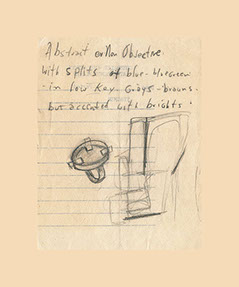 Abstract or Non Objective
with splits of blue-bluegreen
in low key Grays-browns.
but accented with brights.